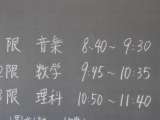 限 音楽 8:40~9:30
2限 数学 9:45~10:35
3限 理科 10:50~11:40